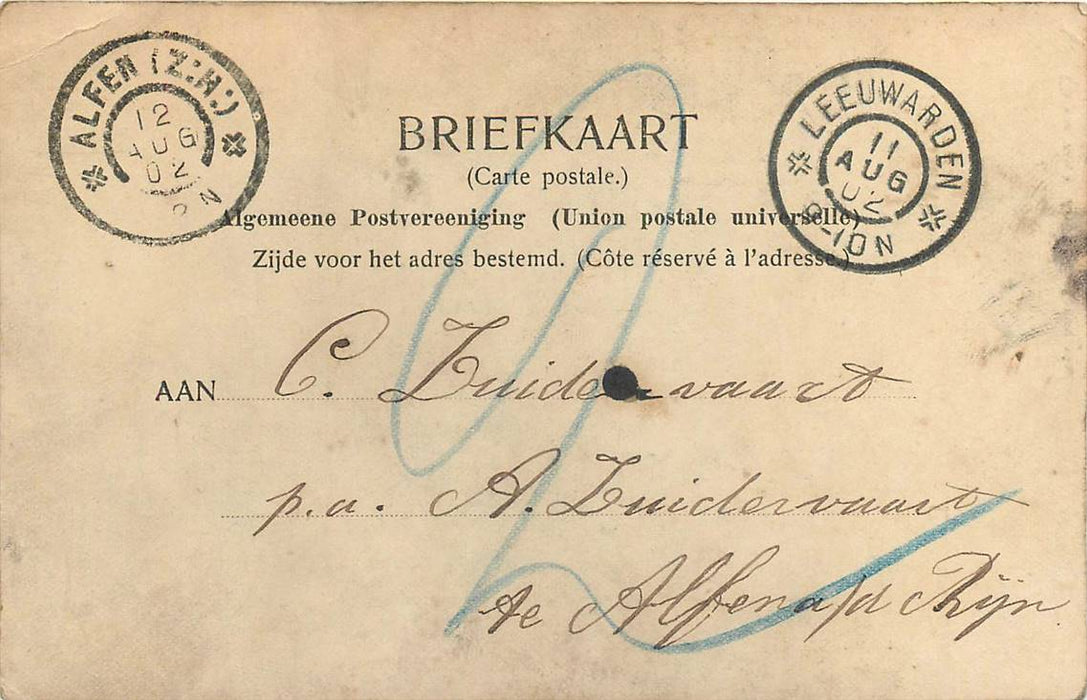 ALFEN (Z:H:)
12
AUG
02
2 N
LEEUWARDEN
11
AUG
02
8-10N
BRIEFKAART
(Carte postale.)
Algemeene Postvereeniging (Union postale universelle)
Zijde voor het adres bestemd. (Côte réservé à l'adresse.)
AAN C. Zuidervaart
p.a. A. Zuidervaart
te Alfen a/d Rijn
2